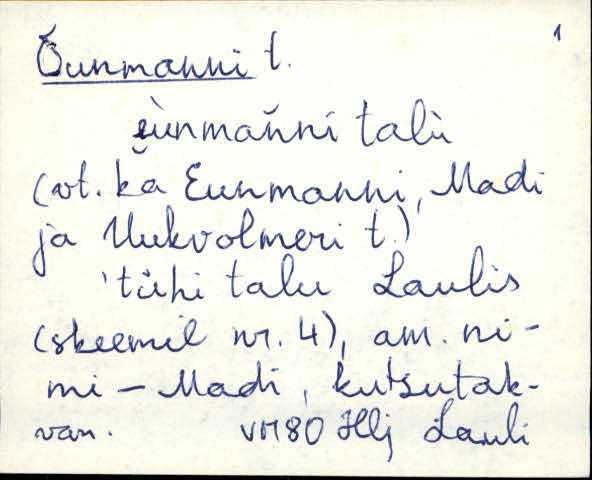 1
Õunmanni t.
èùnman̆ni talù
(vt. ka Eunmanni, Madi
ja Uukvolmeri t.)
'tühi talu Laulis
(skeemil nr. 4), am. ni-
mi – Madi, kutsutak-
van. VM80 Hlj Lauli